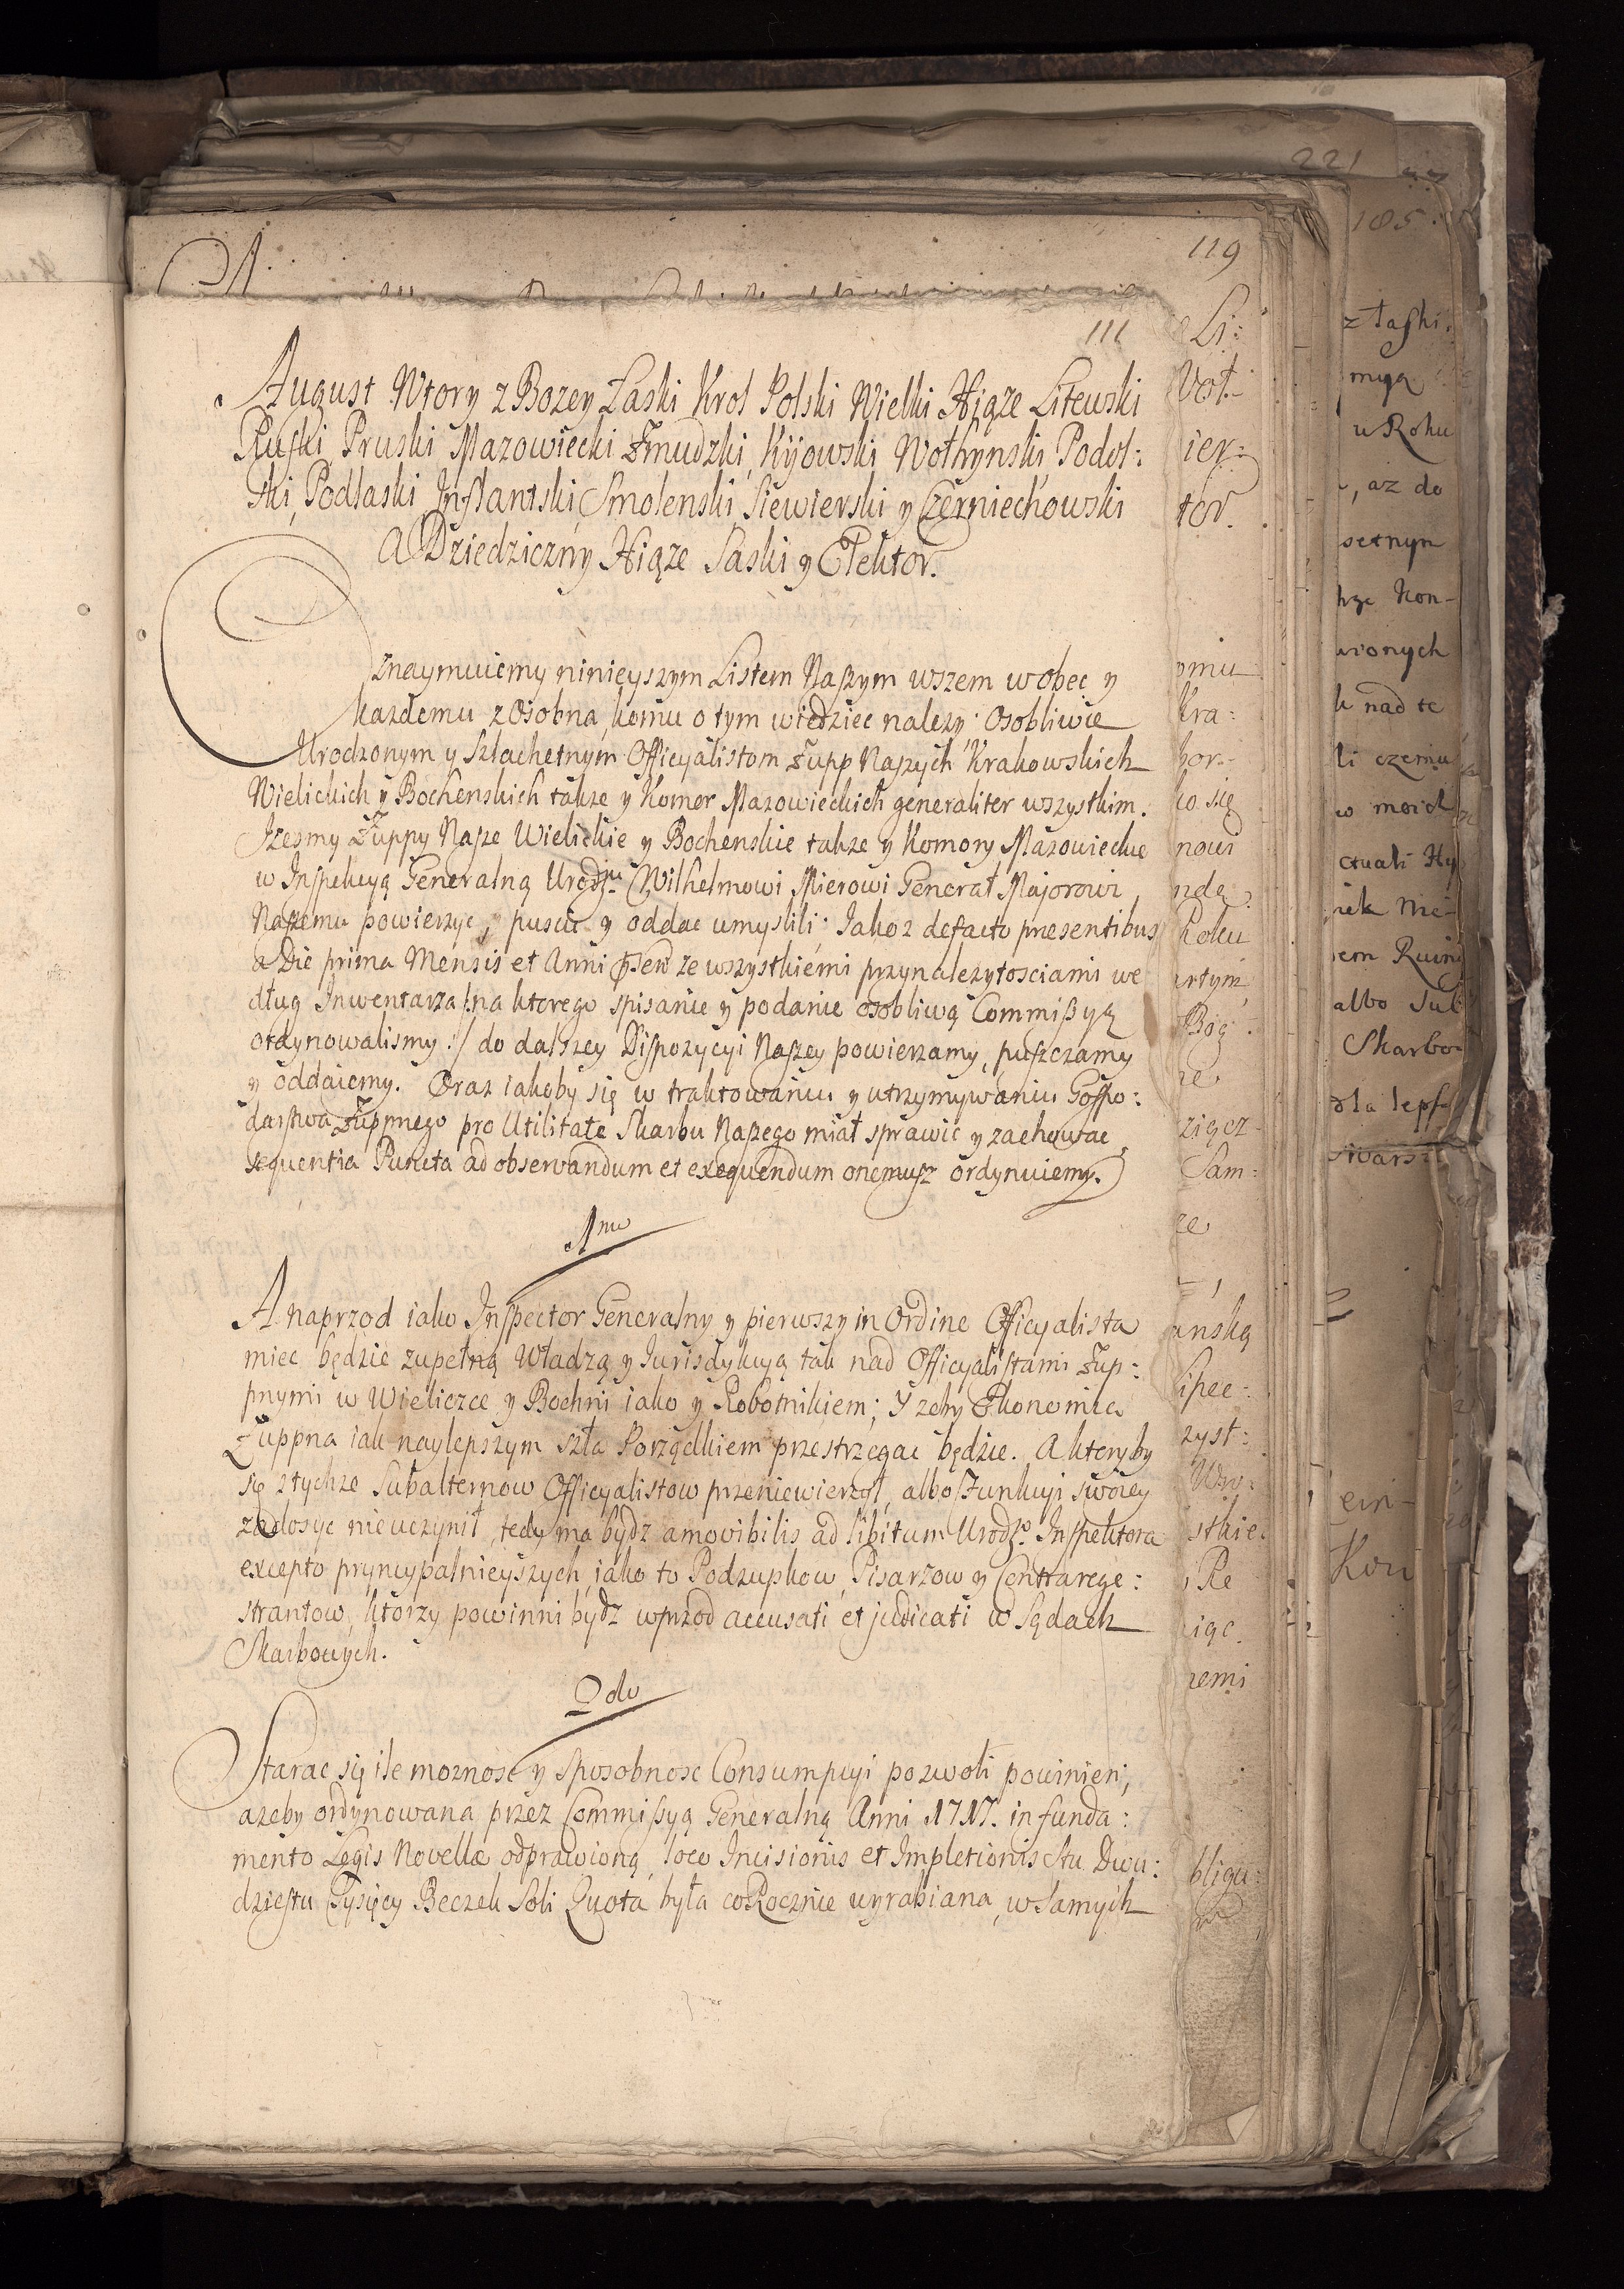 119
111
August Wtory z Bozey Łaski Krol Polski Wielki Xiąze Litewski
Ruski, Pruski Mazowiecki Żmudzki, Kijowski Wołhynski Podol:
ski, Podlaski Inflantski, Smolenski, Siewierski y Czerniechowski
A Dziedziczny Xiąze Saski y Elektor.
Oznaymuiemy ninieyszym Listem Naszym wszem wobec y
kazdemu z Osobna, komu o tym wiedziec nalezy: Osobliwie
Urodzonym y Szlachetnym Officyalistom Żupp Naszych Krakowskich
Wielickich y Bochenskich takze y Komor Mazowieckich generaliter wszystkim.
Izesmy Żuppy Nasze Wielickie y Bochenskie takze y Komory Mazowieckie
w Inspekcyą Generalną Urodz. Wilhelmowi Mierowi General Majorowi
Naszemu powierzyc, puscic y oddac umyslili: Jakoz defacto præsentibus
a Die prima Mensis et Anni ze wszystkiemi przynalezytosciami we
dług Inwentarza /:na ktorego spisanie y podanie osobliwą Commissyą
ordynowalismy:/ do dalszey Dispozycyi Naszey powierzamy, puszczamy
y oddaiemy. Oraz iakoby się w traktowaniu y utrzymywaniu Gospo:
darstwa Żuppnego pro Utilitate Skarbu Naszego miał sprawic y zachowac
sequentia Puncta ad observandum et exequendum onemusz ordynuiemy.
1mo
A naprzod iako Inspector Generalny y pierwszy in Ordine Officyalista
miec będzie zupełną Władzą y Iurisdykcyą tak nad Officyalistami Żup:
pnymi w Wieliczce y Bochni iako y Robotnikiem; Y zeby Ekonomica
Żuppna iak naylepszym szła Porządkiem przestrzegac będzie. A ktoryby
się z tychze Subalternow Officyalistow przeniewierzył, albo Funkcyi swoiey
zadosyc nie uczynił, tedy ma bydz amovibilis ad libitum Urodz. Inspektora
excepto pryncypalnieyszych, iako to Podzupkow, Pisarzow y Contrarege:
strantow, ktorzy powinni bydz wprzod accusati et judicati w Sądach
Skarbowych.
2do
Starac się ile moznosc y sposobnosc Consumpcyi pozwoli powinien;
azeby ordynowana przez Commissyą Generalną Anni 1717. in funda:
mento Legis Novellæ odprawioną, loco Incisionis et Impletionis Stu Dwu:
dziestu Tysięcy Beczek Soli Quota była co Rocznie wyrabiana, w samych
221
185